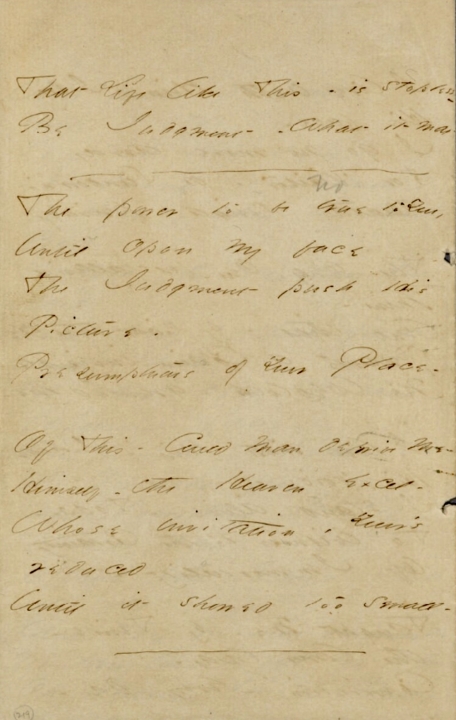 That Life like This - is stopless
Be Judgment - what it may
The power to be true to You,
Until upon my face
The Judgment push his
Picture -
Presumptuous of Your Place -
Of This - Could Man deprive Me -
Himself - the Heaven excel -
Whose invitation, Your's
reduced
Until it showed too small -